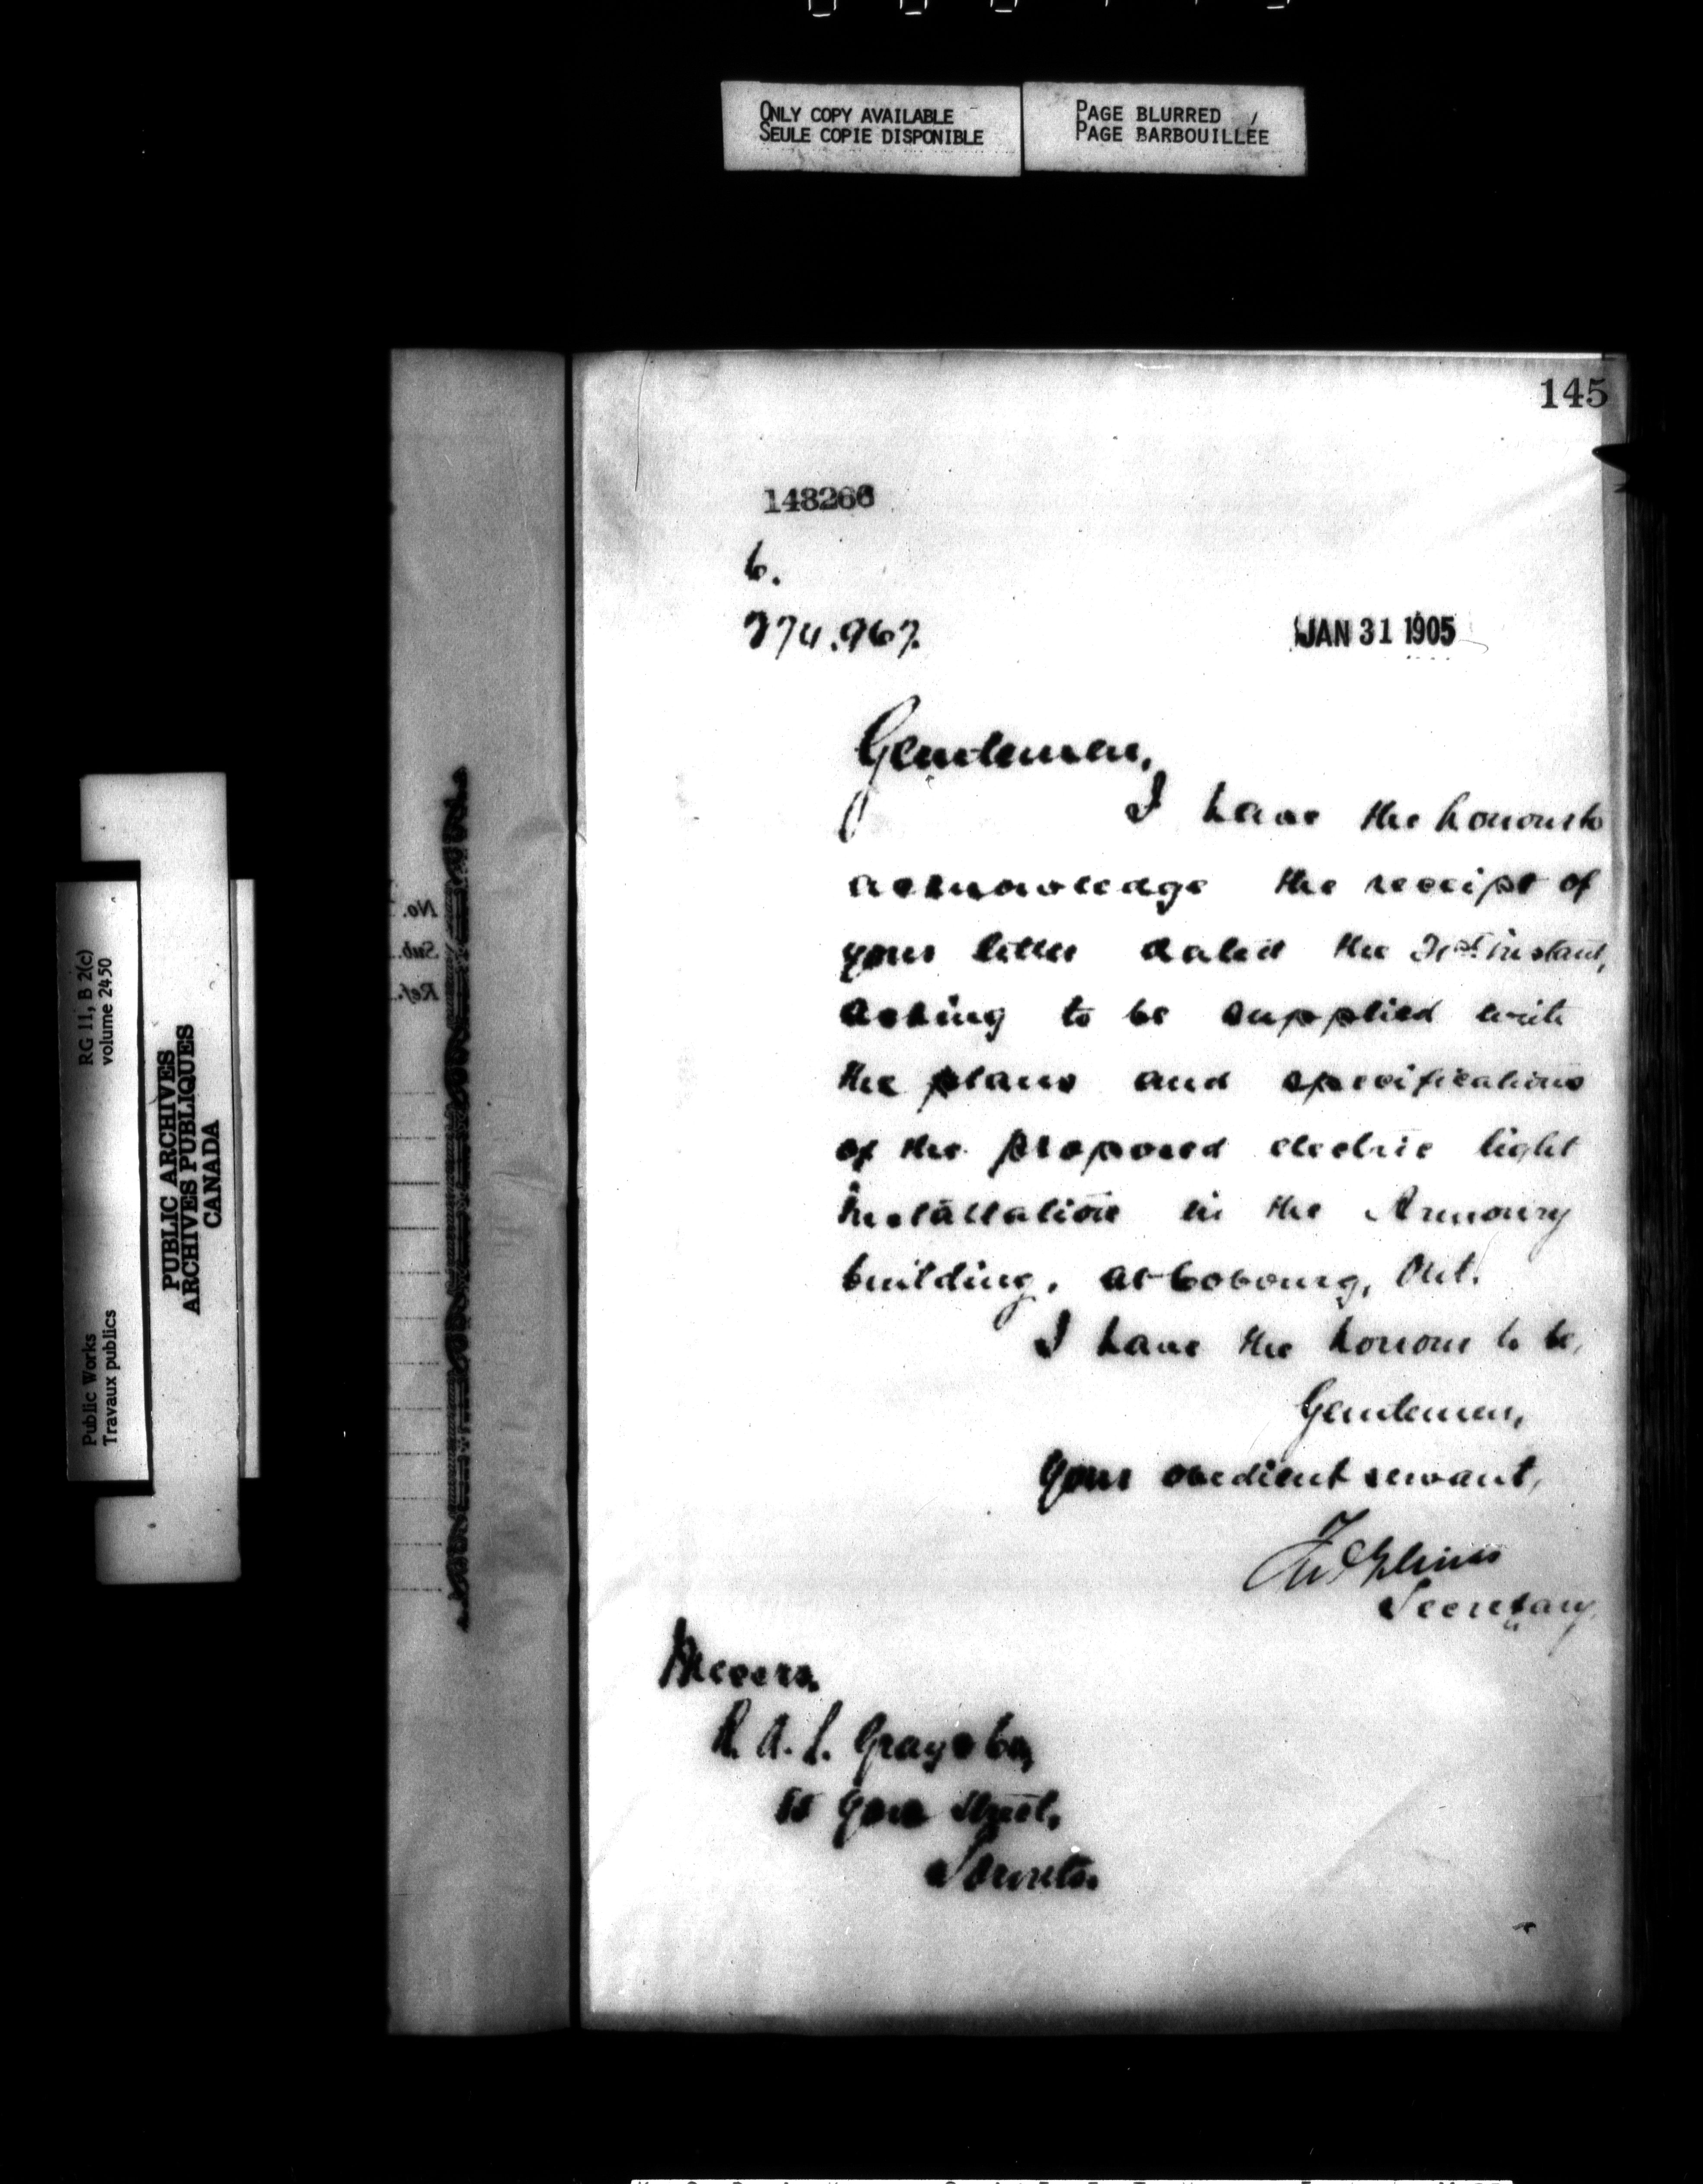 ONLY COPY AVAILABLE
SEULE COPIE DISPONIBLE
PAGE BLURRED
PAGE BARBOUILLÉE
145
148266
6.
274.967.
JAN 31 1905
Gentlemen,
I have the honour to
acknowledge the receipt of
your letter dated the instant,
asking to be supplied with
the plans and specifications
of the proposed electric light
installation in the Armoury
building, at Cobourg, Ont.
I have the honour to be,
Gentlemen,
Your obedient servant,
Secretary
Messrs.
R. A. L. Gray & Co,
85 York Street,
Toronto.
No.
Sub.
Ref.
RG 11, B 2(c)
volume 2450
PUBLIC ARCHIVES
ARCHIVES PUBLIQUES
CANADA
Public Works
Travaux publics